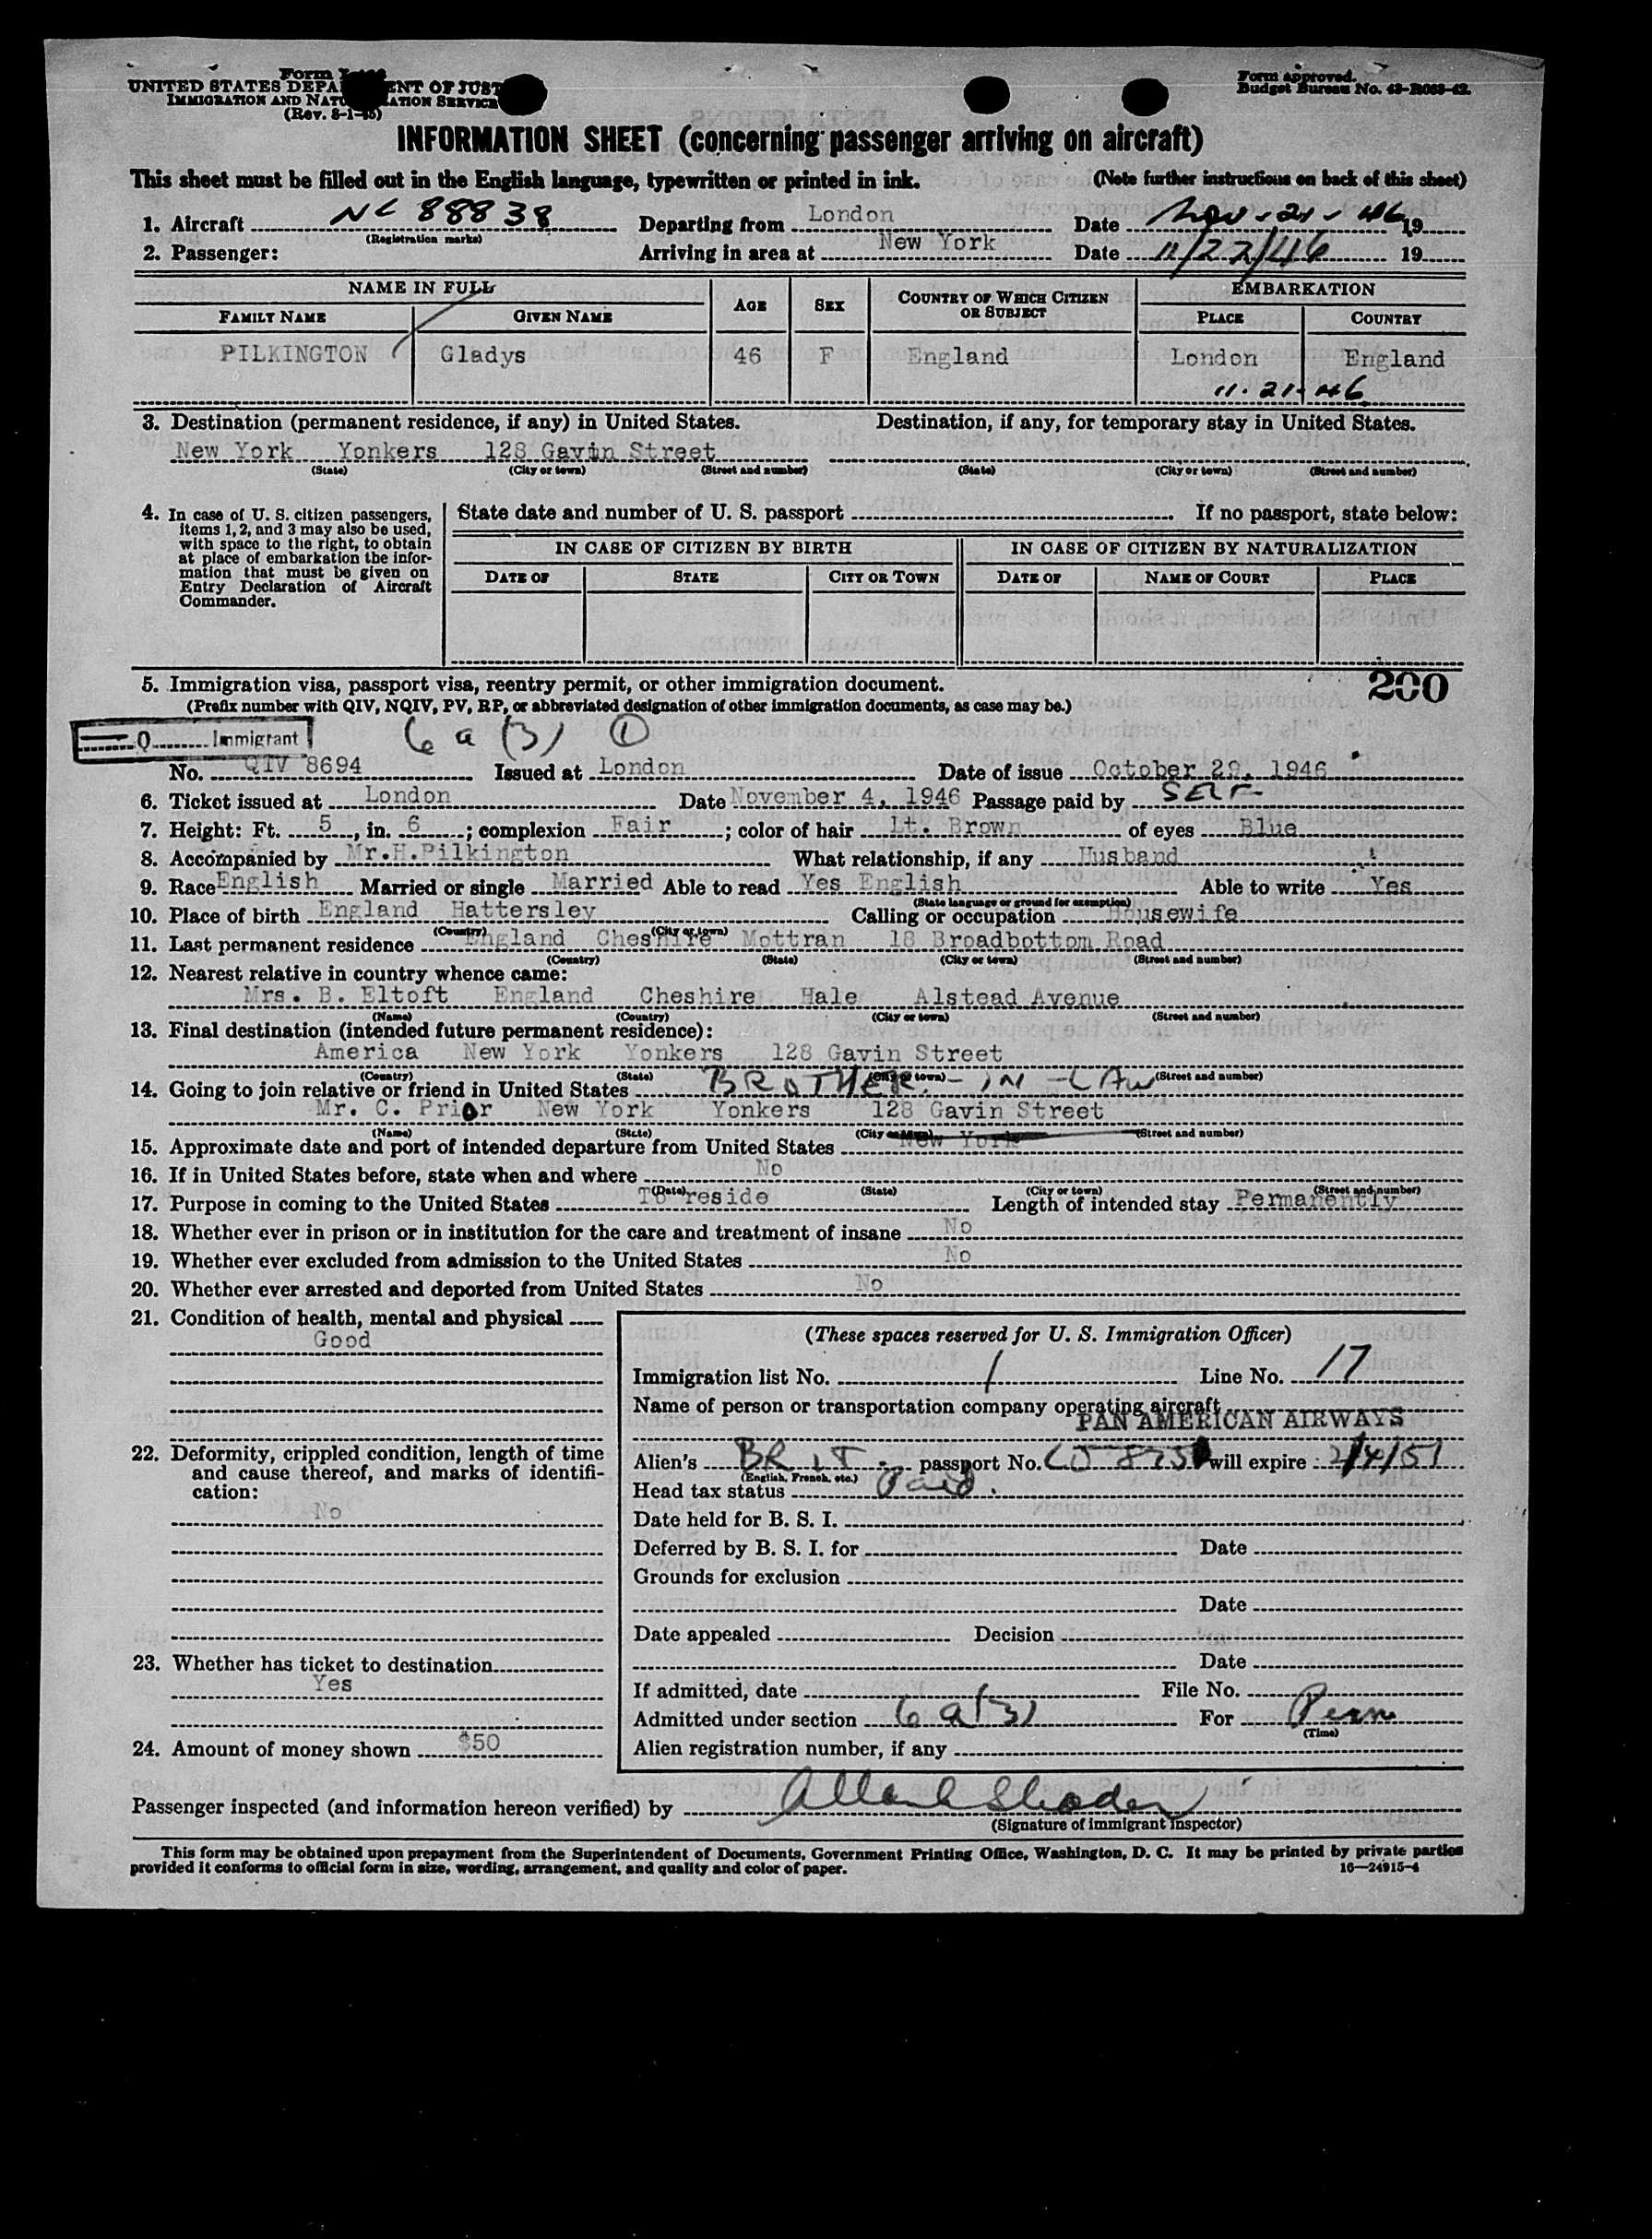 Form
UNITED STATES DEPA ENT OF JUST
IMMIGRATION AND NATU ATION SERVICE
(Rev. 8-1-45)
Form approved.
Budget Bureau No. 43-R063-42.
INFORMATION SHEET (concerning passenger arriving on aircraft)
This sheet must be filled out in the English language, typewritten or printed in ink. (Note further instructions on back of this sheet)
1. Aircraft NC 88838 Departing from London Date Nov-21-46 19
(Registration marks)
2. Passenger: Arriving in area at New York Date 11/22/46 19
NAME IN FULL AGE SEX COUNTRY OF WHICH CITIZEN OR SUBJECT EMBARKATION
FAMILY NAME GIVEN NAME PLACE COUNTRY
PILKINGTON Gladys 46 F England London England
11-21-46
3. Destination (permanent residence, if any) in United States. Destination, if any, for temporary stay in United States.
New York Yonkers 128 Gavin Street
(State) (City or town) (Street and number) (State) (City or town) (Street and number)
4. In case of U. S. citizen passengers, items 1, 2, and 3 may also be used, with space to the right, to obtain at place of embarkation the information that must be given on Entry Declaration of Aircraft Commander.
State date and number of U. S. passport If no passport, state below:
IN CASE OF CITIZEN BY BIRTH IN CASE OF CITIZEN BY NATURALIZATION
DATE OF STATE CITY OR TOWN DATE OF NAME OF COURT PLACE
200
5. Immigration visa, passport visa, reentry permit, or other immigration document.
(Prefix number with QIV, NQIV, PV, RP, or abbreviated designation of other immigration documents, as case may be.)
Q Immigrant 6 a (3) 1
No. QIV 8694 Issued at London Date of issue October 29, 1946
6. Ticket issued at London Date November 4, 1946 Passage paid by SELF
7. Height: Ft. 5, in. 6; complexion Fair; color of hair Lt. Brown of eyes Blue
8. Accompanied by Mr.H.Pilkington What relationship, if any Husband
9. Race English Married or single Married Able to read Yes English Able to write Yes
(State language or ground for exemption)
10. Place of birth England Hattersley Calling or occupation Housewife
(Country) (City or town)
11. Last permanent residence England Cheshire Mottran 18 Broadbottom Road
(Country) (State) (City or town) (Street and number)
12. Nearest relative in country whence came:
Mrs. B. Eltoft England Cheshire Hale Alstead Avenue
(Name) (Country) (City or town) (Street and number)
13. Final destination (intended future permanent residence):
America New York Yonkers 128 Gavin Street
(Country) (State) (City or town) (Street and number)
14. Going to join relative or friend in United States BROTHER-IN-LAW
Mr. C. Prior New York Yonkers 128 Gavin Street
(Name) (State) (City or town) (Street and number)
15. Approximate date and port of intended departure from United States New York
16. If in United States before, state when and where No
(Date) (State) (City or town) (Street and number)
17. Purpose in coming to the United States To reside Length of intended stay Permanently
18. Whether ever in prison or in institution for the care and treatment of insane No
19. Whether ever excluded from admission to the United States No
20. Whether ever arrested and deported from United States No
21. Condition of health, mental and physical
Good
22. Deformity, crippled condition, length of time and cause thereof, and marks of identification:
No
23. Whether has ticket to destination
Yes
24. Amount of money shown $50
(These spaces reserved for U. S. Immigration Officer)
Immigration list No. 1 Line No. 17
Name of person or transportation company operating aircraft
PAN AMERICAN AIRWAYS
Alien's BRIT. passport No. will expire 2/4/51
(English, French, etc.)
Head tax status Paid.
Date held for B. S. I.
Deferred by B. S. I. for Date
Grounds for exclusion
Date
Date appealed Decision
Date
If admitted, date File No.
Admitted under section 6 a(3) For Perm
(Time)
Alien registration number, if any
Passenger inspected (and information hereon verified) by
(Signature of Immigrant Inspector)
This form may be obtained upon prepayment from the Superintendent of Documents, Government Printing Office, Washington, D. C. It may be printed by private parties
provided it conforms to official form in size, wording, arrangement, and quality and color of paper. 16—24915-4